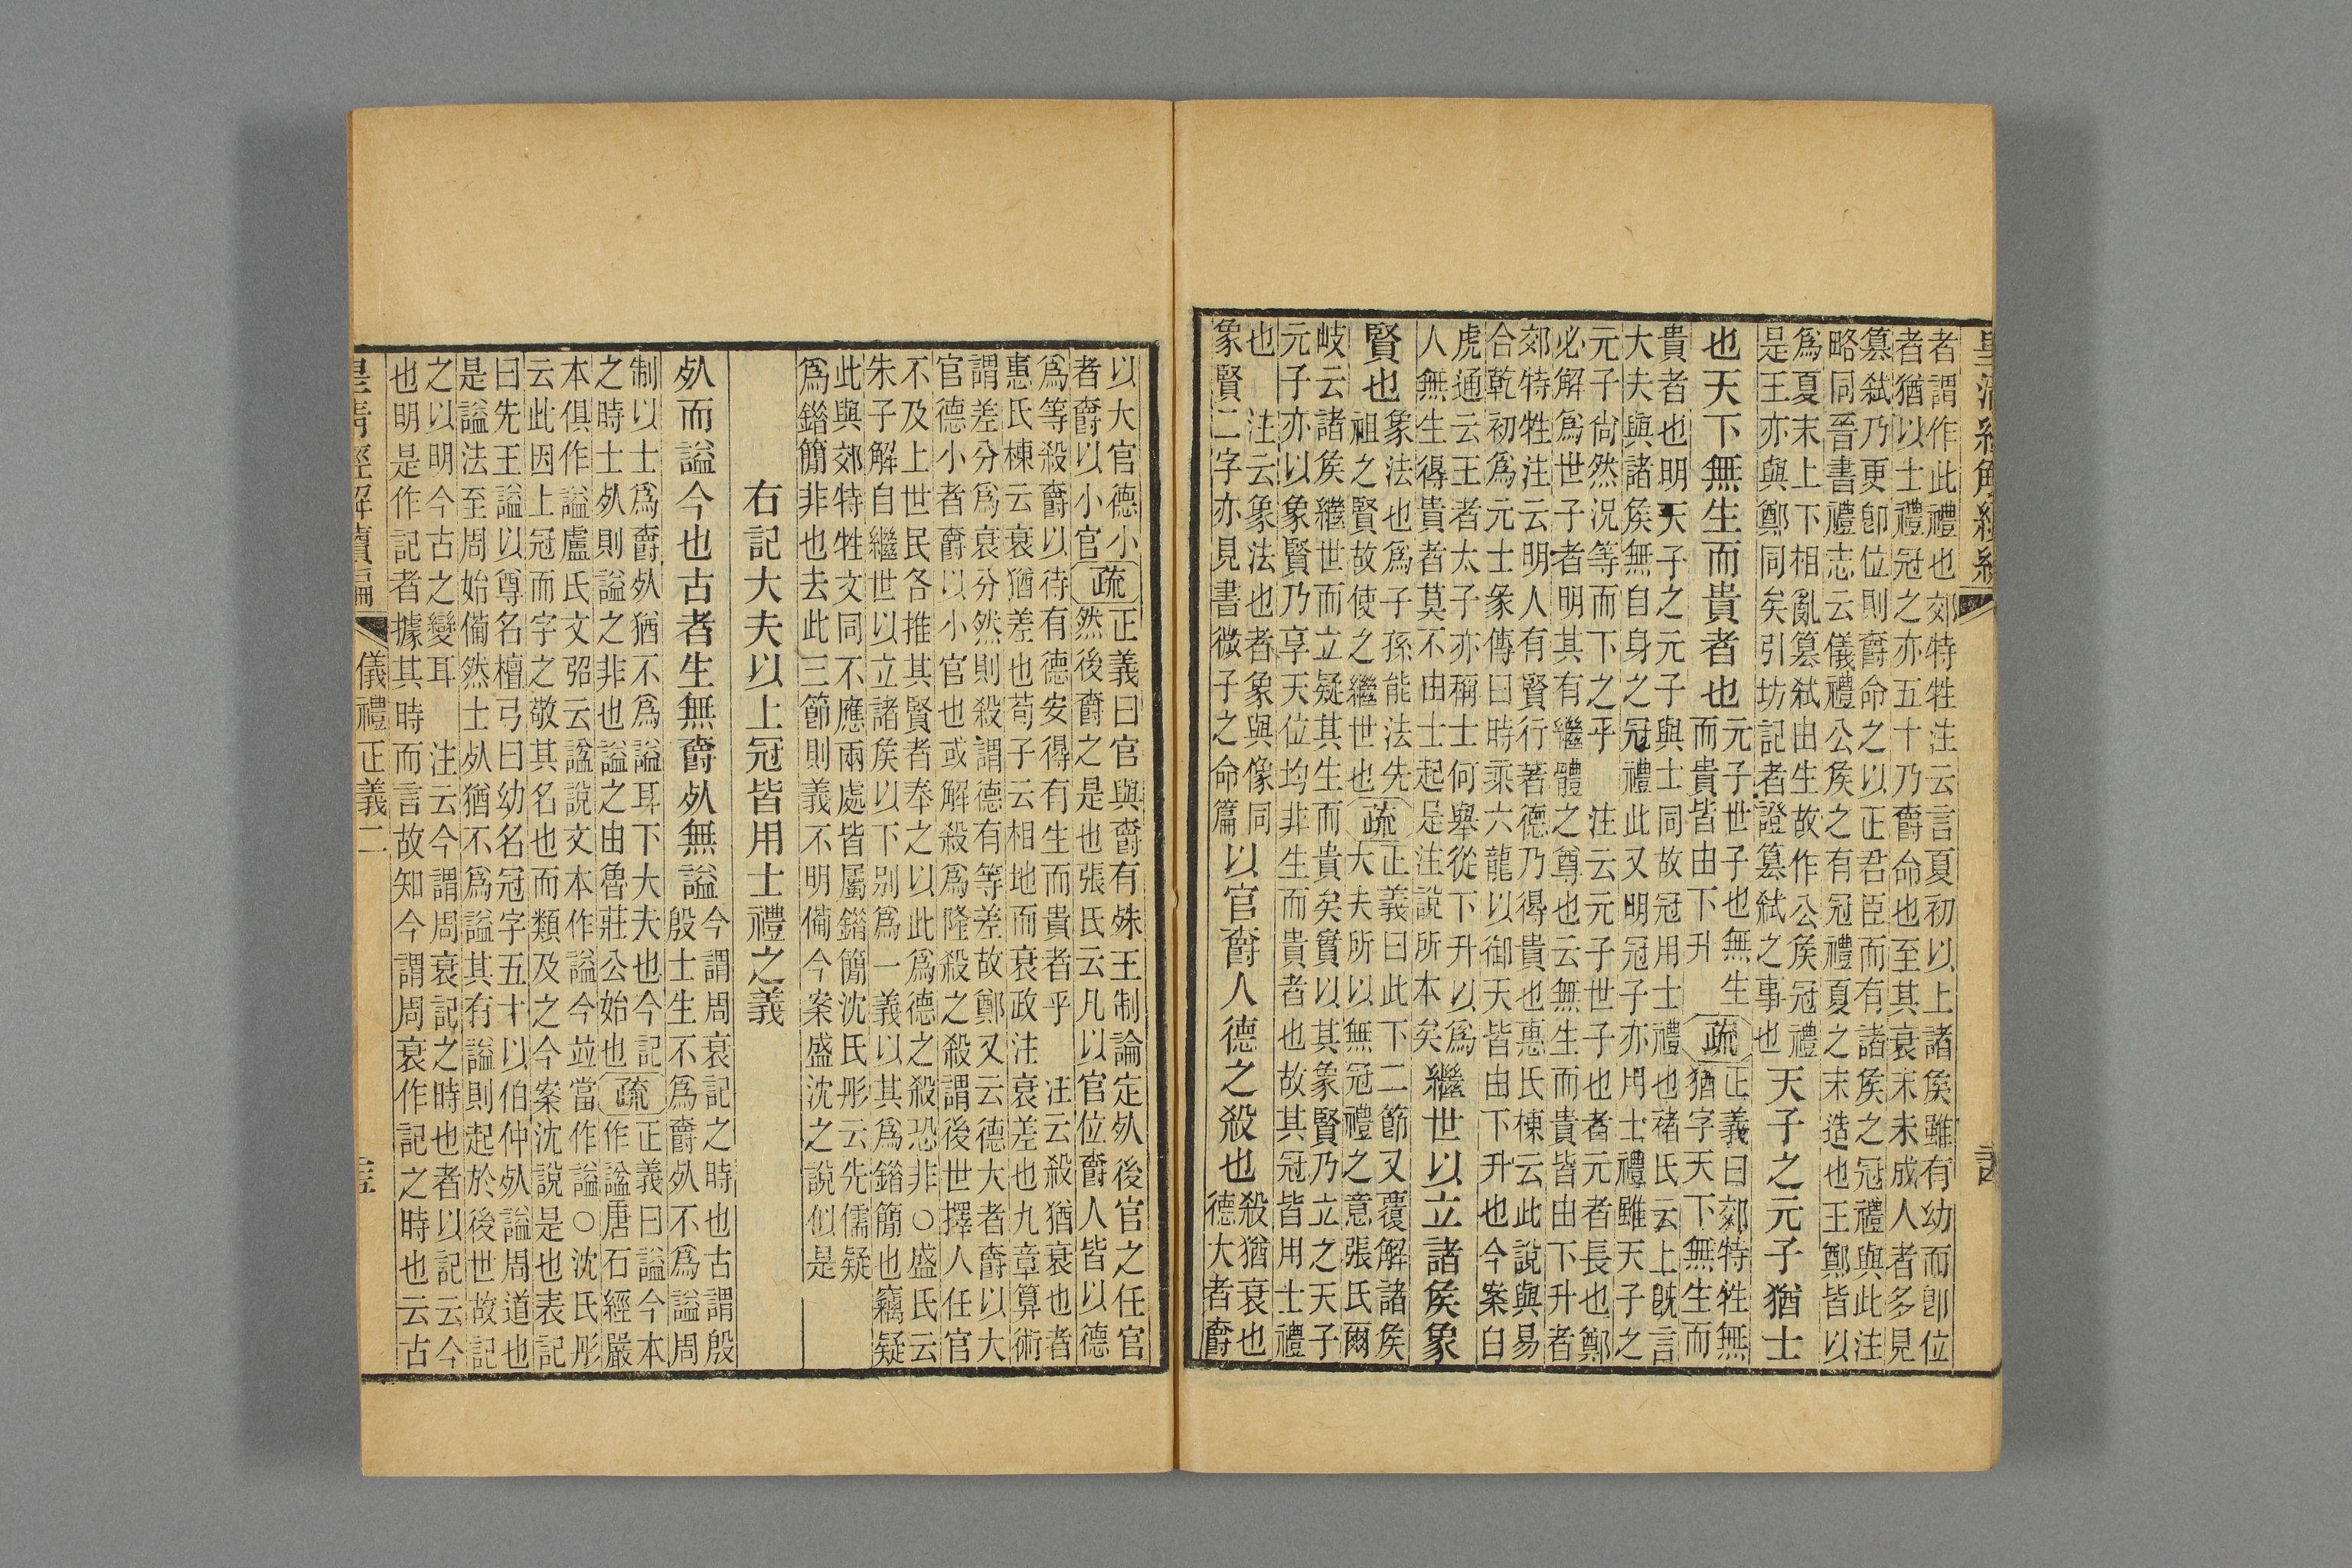 者謂作此禮也郊特牲注云言夏初以上諸矦雖有幼而卽位
者猶以士禮冠之亦五十乃爵命也至其衰末未成人者多見
篡弑乃更卽位則爵命之以正君臣而有諸矦之冠禮與此注
略同晉書禮志云儀禮公矦之有冠禮夏之末造也王鄭皆以
爲夏末上下相亂篡弑由生故作公矦冠禮
是王亦與鄭同矣引坊記者證篡弑之事也
天子之元子猶士
也天下無生而貴者也
元子世子也無生
而貴皆由下升
疏
正義曰郊特牲無
猶字天下無生而
貴者也明天子之元子與士同故冠用士禮也褚氏云上旣言
大夫與諸矦無自身之冠禮此又明冠子亦用士禮雖天子之
元子尙然況等而下之乎　注云元子世子也者元者長也鄭
必解爲世子者明其有繼體之尊也云無生而貴皆由下升者
郊特牲注云明人有賢行著德乃得貴也惠氏棟云此說與易
合乾初爲元士彖傳曰時乘六龍以御天皆由下升也今案白
虎通云王者太子亦稱士何舉從下升以爲
人無生得貴者莫不由士起是注說所本矣
繼世以立諸矦象
賢也
象法也爲子孫能法先
祖之賢故使之繼世也
疏
正義曰此下二節又覆解諸矦
大夫所以無冠禮之意張氏爾
岐云諸矦繼世而立疑其生而貴矣實以其象賢乃立之天子
元子亦以象賢乃享天位均非生而貴者也故其冠皆用士禮
也　注云象法也者象與像同
象賢二字亦見書微子之命篇
以官爵人德之殺也
殺猶衰也
德大者爵
以大官德小
者爵以小官
疏
正義曰官與爵有殊王制論定夘後官之任官
然後爵之是也張氏云凡以官位爵人皆以德
爲等殺爵以待有德安得有生而貴者乎　注云殺猶衰也者
惠氏棟云衰猶差也荀子云相地而衰政注衰差也九章算術
謂差分爲衰分然則殺謂德有等差故鄭又云德大者爵以大
官德小者爵以小官也或解殺爲隆殺之殺謂後世擇人任官
不及上世民各推其賢者奉之以此爲德之殺恐非○盛氏云
朱子解自繼世以立諸矦以下别爲一義以其爲錯簡也竊疑
此與郊特牲文同不應兩處皆屬錯簡沈氏彤云先儒疑
爲錯簡非也去此三節則義不明備今案盛沈之說似是
右記大夫以上冠皆用士禮之義
夘而謚今也古者生無爵夘無謚
今謂周衰記之時也古謂殷
殷士生不爲爵夘不爲謚周
制以士爲爵夘猶不爲謚耳下大夫也今記
之時士夘則謚之非也謚之由魯莊公始也
疏
正義曰謚今本
作諡唐石經嚴
本俱作謚盧氏文弨云諡說文本作謚今並當作謚○沈氏彤
云此因上冠而字之敬其名也而類及之今案沈說是也表記
曰先王謚以尊名檀弓曰幼名冠字五十以伯仲夘謚周道也
是謚法至周始備然士夘猶不爲謚其有謚則起於後世故記
之以明今古之變耳　注云今謂周衰記之時也者以記云今
也明是作記者據其時而言故知今謂周衰作記之時也云古
儀禮正義二